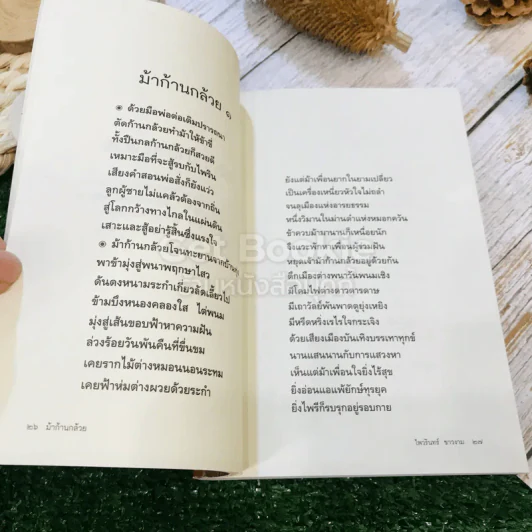 ม้าก้านกล้วย ๑
๏ ด้วยมือพ่อต่อเติมปรารถนา
ตัดก้านกล้วยทำม้าให้ข้าขี่
ทั้งปืนกลก้านกล้วยก็สวยดี
เหมาะมือที่จะสู้รบกับไพริน
เสียงคำสอนพ่อสั่งก็ยังแว่ว
ลูกผู้ชายไม่แคล้วต้องจากถิ่น
สู่โลกกว้างทางไกลในแผ่นดิน
เสาะและสู้อย่ารู้สิ้นซึ่งแรงใจ
๏ ม้าก้านกล้วยโจนทะยานจากบ้านทุ่ง
พาข้ามุ่งสู่พนาพฤกษาไสว
ดันดงหนามระกำเกี่ยวลัดเลี้ยวไป
ข้ามบึงหนองคลองใส ไต่พนม
มุ่งสู่เส้นขอบฟ้าหาความฝัน
ล่วงร้อยวันพันคืนที่ขื่นขม
เคยรากไม้ต่างหมอนนอนระทม
เคยฟ้าห่มต่างผวยด้วยระกำ
๒๖ ม้าก้านกล้วย
ยังแต่ม้าเพื่อนยากในยามเปลี่ยว
เป็นเครื่องเหนี่ยวหัวใจไม่ยลำ
จนลุเมืองแห่งอารยธรรม
หนึ่งวิมานในม่านดำแห่งหมอกควัน
ข้าควบม้ามานานก็เหนื่อยนัก
จึงแวะพักหาเพื่อนผู้ร่วมฝัน
หยุดเจ้าม้าก้านกล้วยอยู่ด้วยกัน
ตึกเมืองต่างพนาวันพนมเชิง
มีโคมไฟต่างดาวดารดาษ
มีเถาวัลย์พันพาดดูยุ่งเหยิง
มีหรีดหริ่งเรไรใจกระเจิง
ด้วยเสียงเมืองบันเทิงบรรเทาทุกข์
นานแสนนานกับการแสวงหา
เห็นแต่ม้าเพื่อนใจยิ่งไร้สุข
ยิ่งอ่อนแอแพ้ยักษ์ทุรยุค
ยิ่งไพรีก็รบรุกอยู่รอบกาย
ไพวรินทร์ ขาวงาม ๒๗